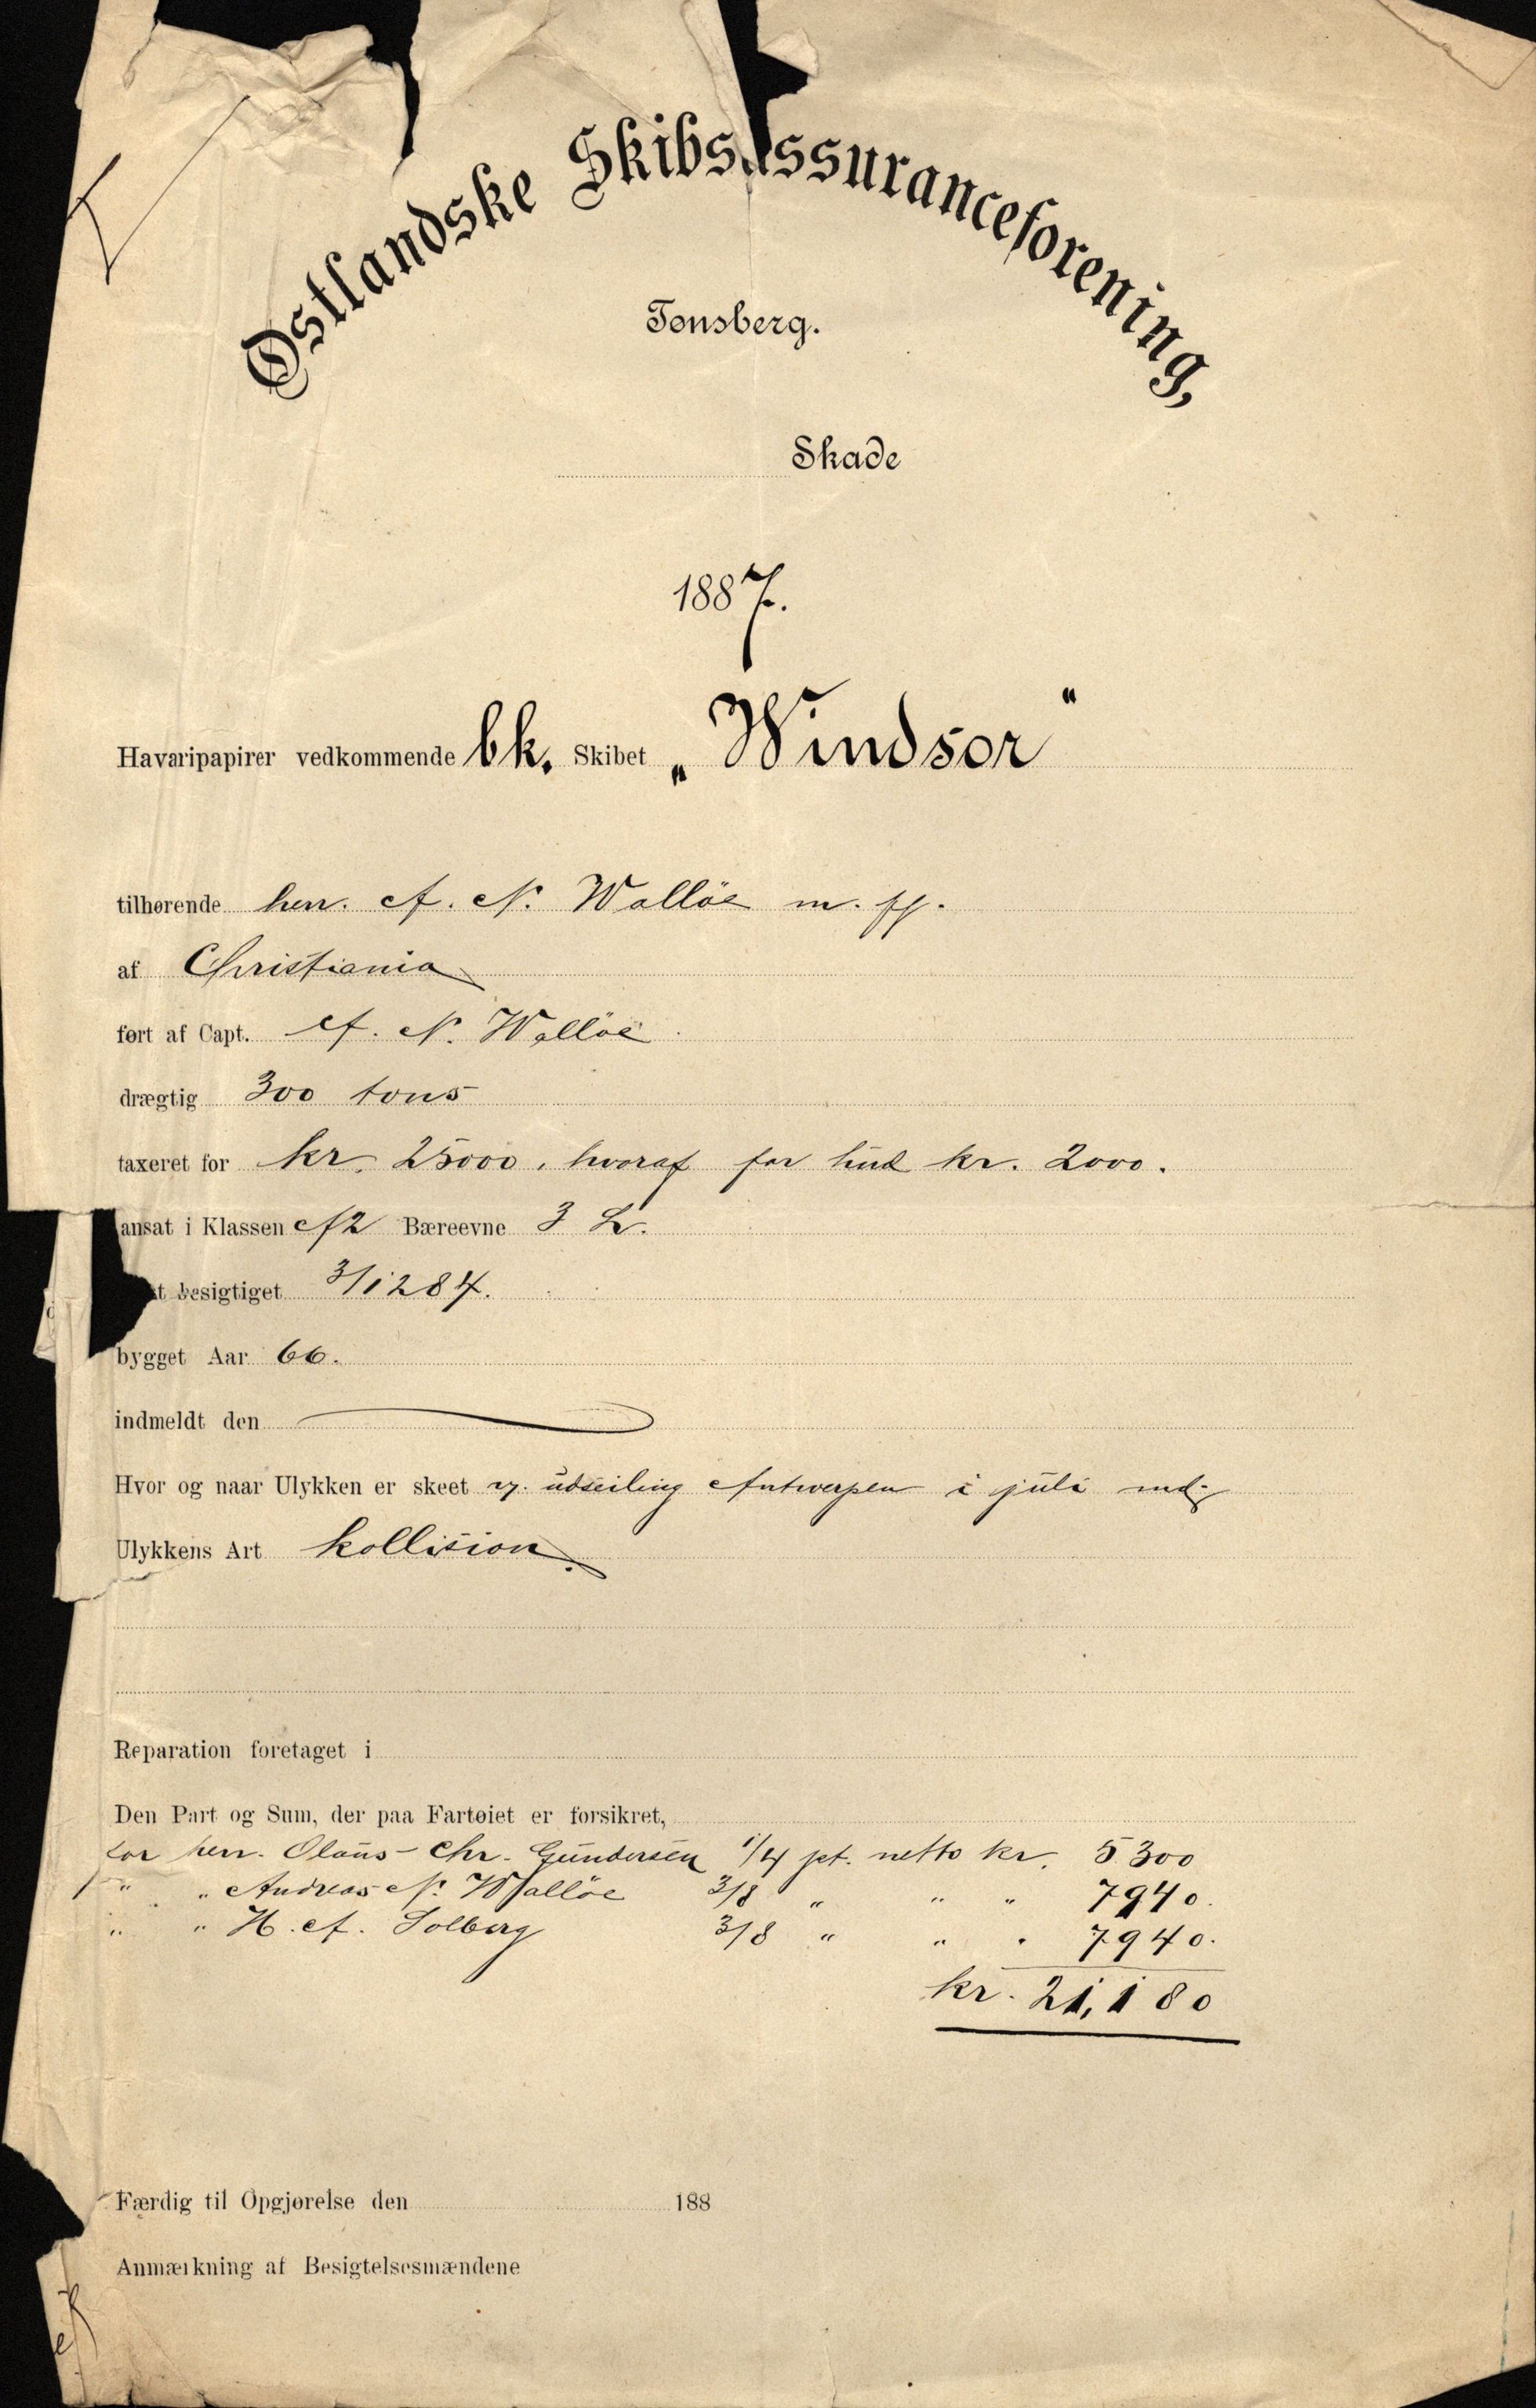 Østlandske Skibsassuranceforening,
Tønsberg.
Skade
1887.
Havaripapirer vedkommende bk. Skibet „Windsor“
tilhørende herr. A. N. Wallöe m. fl.
af Christiania
ført af Capt. A. N. Wallöe
drægtig 300 tons
taxeret for kr. 25000, hvoraf for hud kr. 2000.
ansat i Klassen A2 Bæreevne 3 L.
besigtiget 3/1284.
bygget Aar 66.
indmeldt den
Hvor og naar Ulykken er skeet v. udseiling Antwerpen i juli md.
Ulykkens Art kollision.
Reparation foretaget i
Den Part og Sum, der paa Fartøiet er forsikret,
for herr. Olaus Chr. Gundersen 1/4 pt. netto kr. 5300
" " Andreas N. Wallöe 3/8 " " " 7940.
" " H. A. Solberg 3/8 " " " 7940.
kr. 21,180
Færdig til Opgjørelse den 188
Anmærkning af Besigtelsesmændene